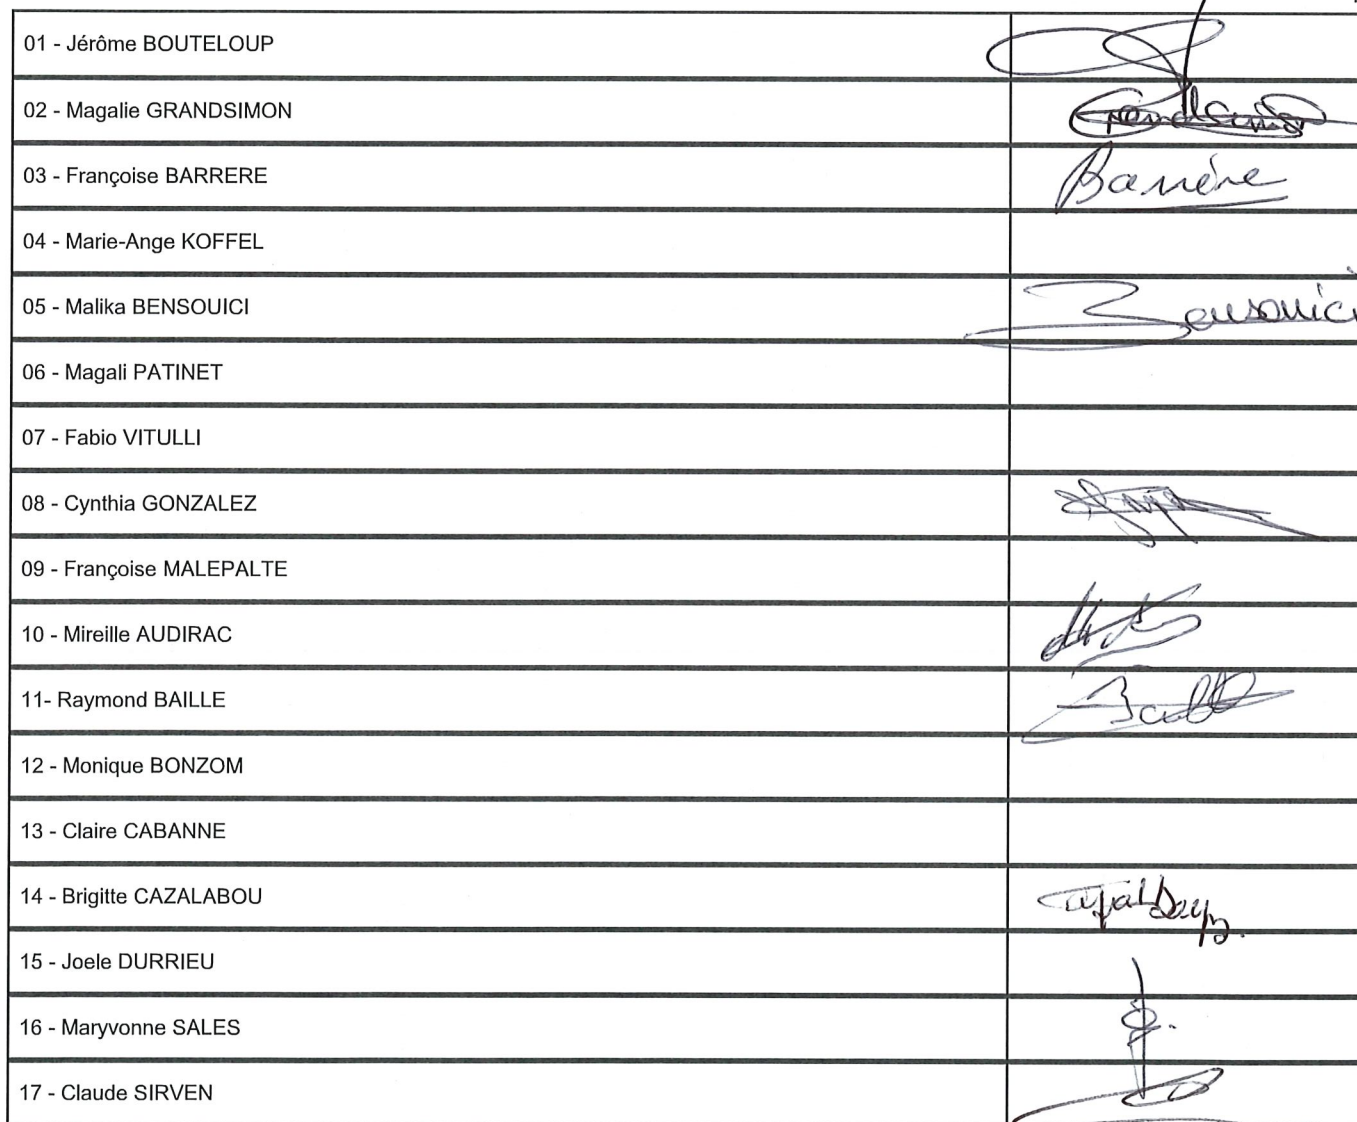 01 - Jérôme BOUTELOUP
02 - Magalie GRANDSIMON Grandsimon
03 - Françoise BARRERE Barrère
04 - Marie-Ange KOFFEL
05 - Malika BENSOUICI Bensouici
06 - Magali PATINET
07 - Fabio VITULLI
08 - Cynthia GONZALEZ
09 - Françoise MALEPALTE
10 - Mireille AUDIRAC
11- Raymond BAILLE
12 - Monique BONZOM
13 - Claire CABANNE
14 - Brigitte CAZALABOU
15 - Joele DURRIEU
16 - Maryvonne SALES
17 - Claude SIRVEN